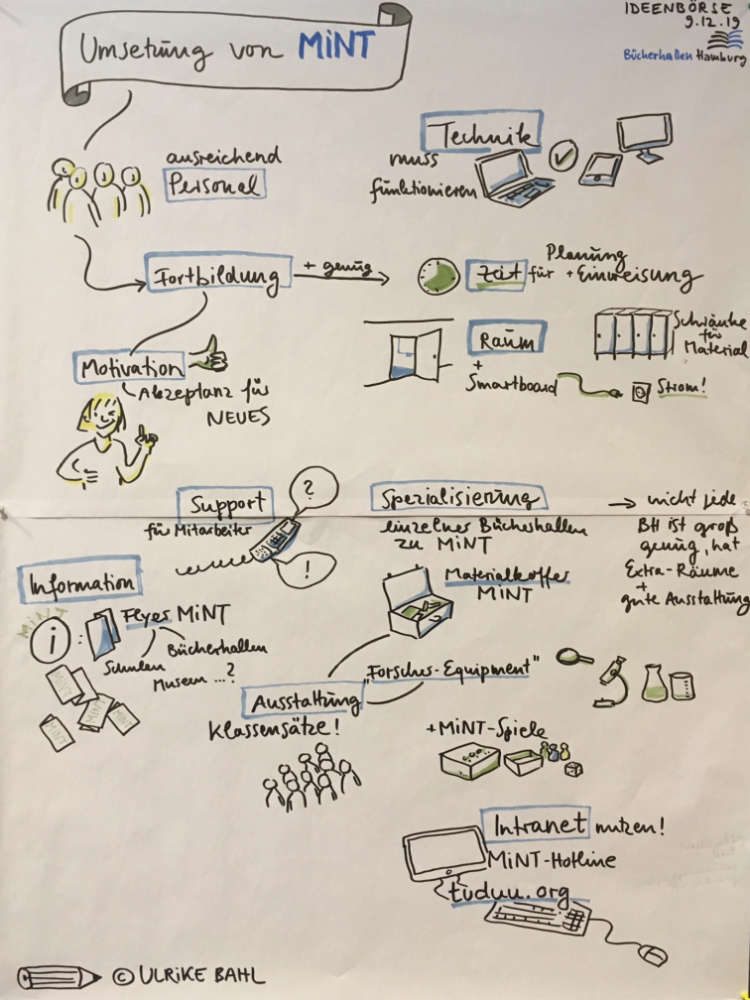 Umsetzung von MiNT
IDEENBÖRSE
9.12.19
Bücherhallen Hamburg
ausreichend
Personal
Technik
muss
funktionieren
Fortbildung
+ genug
Zeit für Planung
+ Einweisung
Motivation
Akzeptanz für
NEUES
Raum
+
Smartboard
Strom!
Schränke
für
Material
Support
für Mitarbeiter
?
!
Spezialisierung
einzelner Bücherhallen
zu MiNT
→ nicht jede
BH ist groß
genug, hat
Extra-Räume
+
gute Ausstattung
Information
MiNT
i
Flyer MiNT
Schulen
Bücherhallen
Museen ...?
Materialkoffer
MiNT
Ausstattung
Klassensätze!
"Forscher-Equipment"
+MiNT-Spiele
Intranet nutzen!
MiNT-Hotline
tuduu.org
© ULRiKE BAHL